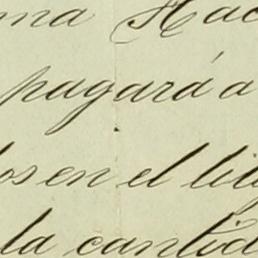 ma Hac
pagará a
los en el lit
la cantid